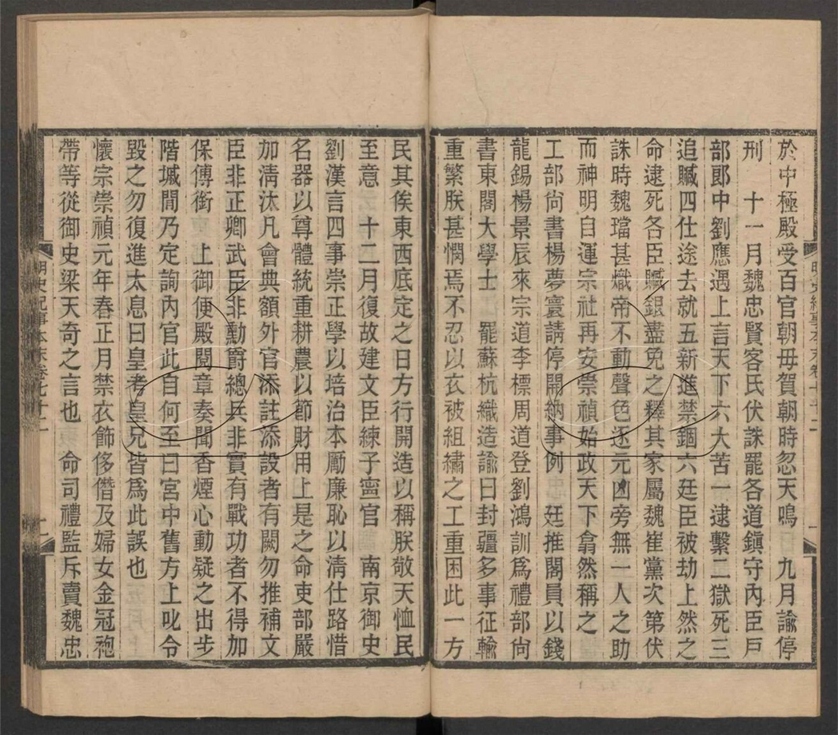 於中極殿受百官朝毋賀朝時忽天鳴　九月諭停
刑　十一月魏忠賢客氏伏誅罷各道鎮守內臣戸
部郎中劉應遇上言天下六大苦一逮繫二獄死三
追贓四仕途去就五新進禁錮六廷臣被劫上然之
命逮死各臣贓銀盡免之釋其家屬魏崔黨次第伏
誅時魏璫甚熾帝不動聲色逐元凶旁無一人之助
而神明自運宗社再安崇禎始政天下翕然稱之
工部尚書楊夢寰請停開納事例　廷推閣員以錢
龍錫楊景辰來宗道李標周道登劉鴻訓爲禮部尚
書東閣大學士　罷蘇杭織造諭曰封疆多事征輸
重繁朕甚憫焉不忍以衣被組繡之工重困此一方
民其俟東西底定之日方行開造以稱朕敬天恤民
至意　十二月復故建文臣練子寧官　南京御史
劉漢言四事崇正學以培治本勵廉恥以清仕路惜
名器以尊體統重耕農以節財用上是之命吏部嚴
加清汰凡會典額外官添註添設者有闕勿推補文
臣非正卿武臣非勳爵總兵非實有戰功者不得加
保傅銜　上御便殿閱章奏聞香煙心動疑之出步
階墄間乃定詢內官此自何至曰宮中舊方上叱令
毀之勿復進太息曰皇考皇兄皆爲此誤也
懷宗崇禎元年春正月禁衣飾侈僭及婦女金冠袍
帶等從御史梁天奇之言也　命司禮監斥賣魏忠
明史紀事本末卷七十二